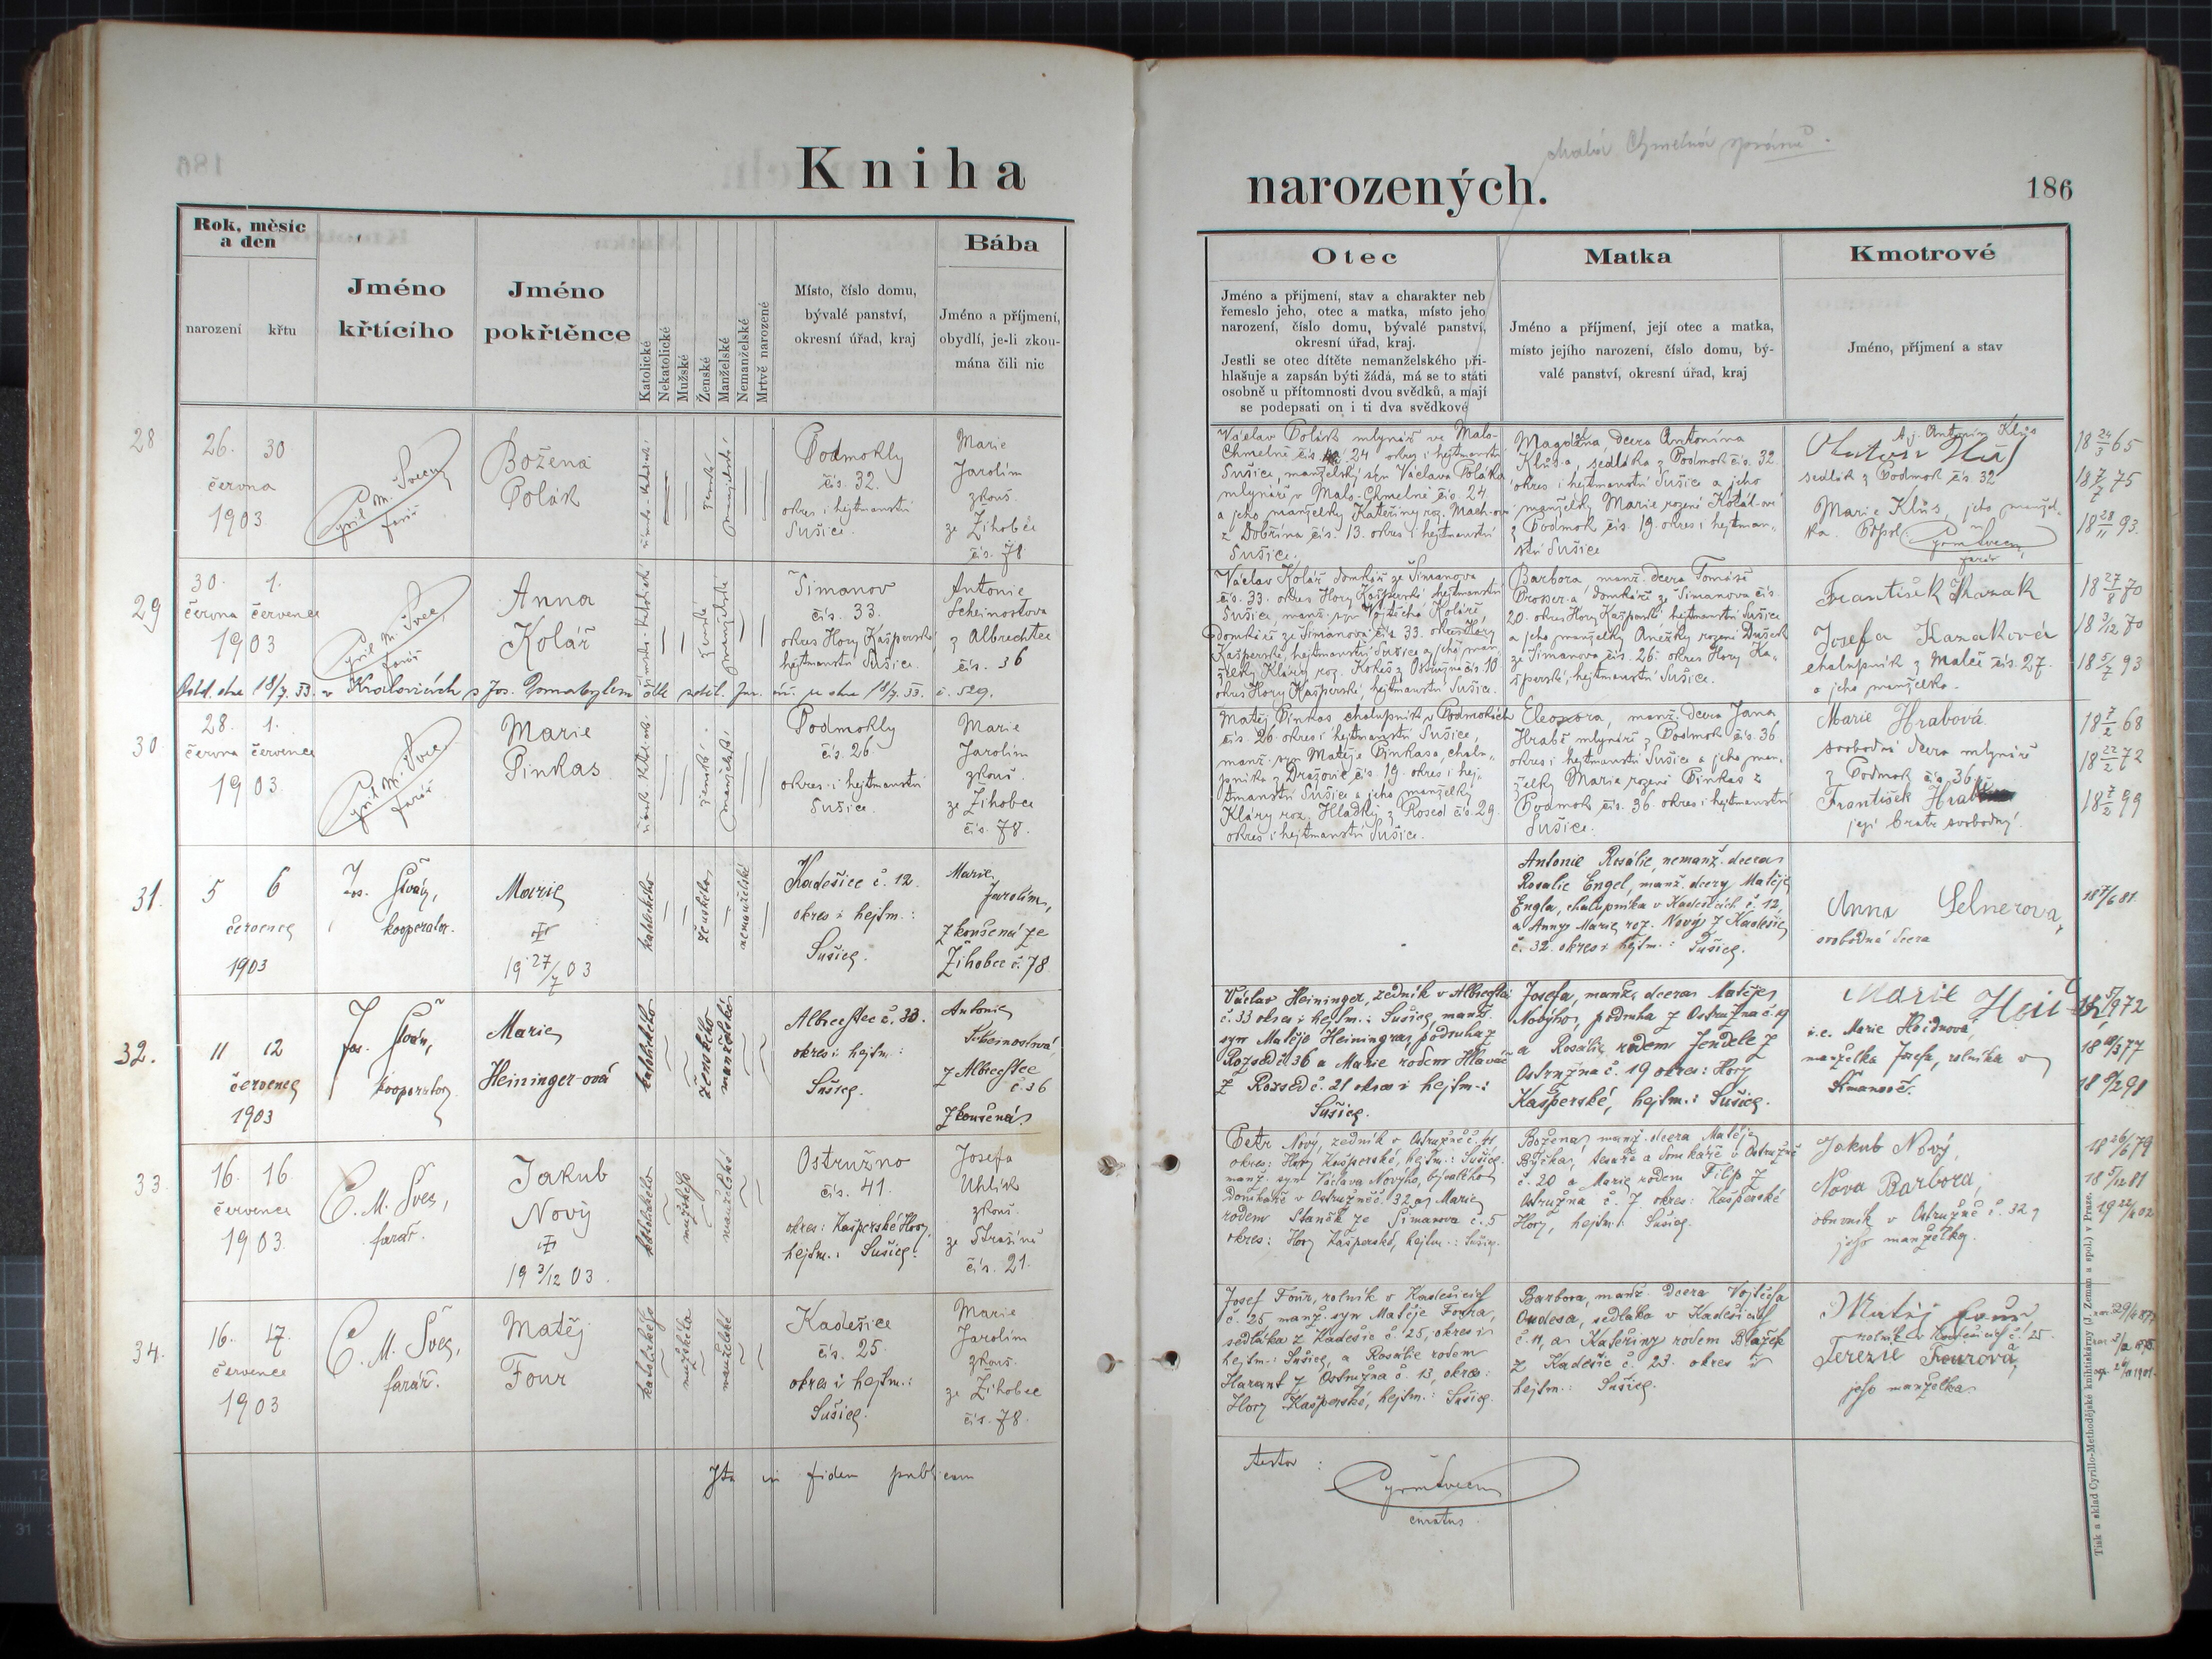 Kniha
narozených.
Malá Chmelná správně.
186
Rok, měsíc
a den
narození
křtu
Jméno
křtícího
Jméno
pokřtěnce
Katolické
Nekatolické
Mužské
Ženské
Manželské
Nemanželské
Mrtvě narozené
Místo, číslo domu,
bývalé panství,
okresní úřad, kraj
Bába
Jméno a příjmení,
obydlí, je-li zkou-
mána čili nic
Otec
Jméno a příjmení, stav a charakter neb
řemeslo jeho, otec a matka, místo jeho
narození, číslo domu, bývalé panství,
okresní úřad, kraj.
Jestli se otec dítěte nemanželského při-
hlašuje a zapsán býti žádá, má se to státi
osobně u přítomnosti dvou svědků, a mají
se podepsati on i ti dva svědkové
Matka
Jméno a příjmení, její otec a matka,
místo jejího narození, číslo domu, bý-
valé panství, okresní úřad, kraj
Kmotrové
Jméno, příjmení a stav
28
26. 30
června
1903
Cyril M. Švec
farář
Božena
Polák
ženské
manželské
Podmokly
čís. 32.
okres i hejtmanství
Sušice.
Marie
Jarolím
zkouš.
ze Žihobce
čís. 78
Václav Polák mlynář ve Malo-
Chmelné čís. 24 okres i hejtmanství
Sušice, manželský syn Václava Poláka
mlynáře v Malo-Chmelné čís. 24.
a jeho manželky Kateřiny roz. Mach-ové
z Dobřína čís. 13. okres i hejtmanství
Sušice.
Magdalena dcera Antonína
Klůs-a, sedláka z Podmok čís. 32.
okres i hejtmanství Sušice a jeho
manželky Marie rozené Kolář-ové
z Podmok čís. 19. okres i hejtman-
ství Sušice
t.j. Antonín Klůs
sedlák z Podmok čís. 32
Marie Klůs, jeho manžel-
ka.
farář
18 24/3 65
18 7/7 75
18 28/11 93.
29
30. 1.
června července
1903
Cyril M. Švec
farář
Anna
Kolář
ženské
manželské
Šimanov
čís. 33.
okres Hory Kašperské
hejtmanství Sušice.
Antonie
Scheinostova
z Albrechtec
čís. 36
Odd. dne 18/7. 53. v Kralovicích s Jos. Domabylem dle sděl.
Václav Kolář domkář ze Šimanova
čís. 33. okres Hory Kašperské hejtmanství
Sušice, manž. syn Vojtěcha Koláře
Domkáře ze Šimanova čís. 33. okres Hory
Kašperské, hejtmanství Sušice a jeho man-
želky Kláry roz. Kokeš z Ostružna čís. 10
okres Hory Kašperské, hejtmanství Sušice.
Barbora, manž. dcera Tomáše
Brosser-a domkáře z Šimanova čís.
20. okres Hory Kašperské hejtmanství Sušice
a jeho manželky Anežky rozené Dušek
ze Šimanova čís. 26. okres Hory Ka-
šperské, hejtmanství Sušice.
František Kazak
Josefa Kazaková
chalupník z Malče čís. 27.
a jeho manželka.
18 27/8 70
18 3/12 70
18 5/7 93
30
28. 1.
června července
1903
Cyril M. Švec
farář
Marie
Pinkas
ženské
manželské
Podmokly
čís. 26
okres i hejtmanství
Sušice.
Marie
Jarolím
zkouš.
ze Žihobce
čís. 78.
Matěj Pinkas chalupník v Podmoklech
čís. 26. okres i hejtmanství Sušice,
manž. syn Matěje Pinkasa, chalu-
pníka z Dražovic čís. 19. okres i hej-
tmanství Sušice a jeho manželky
Kláry roz. Hladký z Rozsed čís. 29.
okres i hejtmanství Sušice.
Eleonora, manž. dcera Jana
Hrabě mlynáře z Podmok čís. 36
okres i hejtmanství Sušice a jeho man-
želky Marie rozené Pinkas z
Podmok čís. 36. okres i hejtmanství
Sušice.
Marie Hrabová
svobodná dcera mlynáře
z Podmok čís. 36
František
její bratr svobodný.
18 7/2 68
18 22/2 72
18 7/2 99
31.
5 6
července
1903
Jos. Sváy,
kooperator.
Marie
19 27/7 03
katolického
ženského
nemanželské
Kadešice č. 12.
okres i hejtm.:
Sušice.
Marie
Jarolím,
zkoušená ze
Žihobce č. 78
Antonie Rosálie, nemanž. dcera
Rosalie Engel, manž. dcery Matěje
Engla, chalupníka v Kadešicích č. 12,
a Anny Marie roz. Nový z Kadešic
č. 32. okres i hejtm.: Sušice.
Anna Selnerova,
svobodná dcera
18 7/6 81
32.
11 12
července
1903
kooperator
Marie
Heininger-ová
katolického
ženského
manželské
Albrechtec č. 33.
okres i hejtm.:
Sušice.
Antonie
Scheinostová
z Albrechtec
č. 36
zkoušená
Václav Heininger, zedník v Albrechtci
č. 33 okres i hejtm.: Sušice, manž.
syn Matěje Heiningra, podruha z
Rozsed č. 36 a Marie rodem Hlaváč
z Rozsed č. 21 okres i hejtm.:
Sušice.
Josefa, manž. dcera Matěje
Nového, podruha z Ostružna č. 19
a Rosálie rodem Jendele z
Ostružna č. 19 okres: Hory
Kašperské, hejtm.: Sušice.
Marie
i.e. Marie Haidnová,
manželka Josefa, rolníka v
Šimanově.
33.
16. 16
července
1903.
C. M. Švec,
farář.
Jakub
Nový
19 3/12 03.
katolického
mužského
manželské
Ostružno
čís. 41.
okres: Kašperské Hory
hejtm.: Sušice.
Josefa
Uhlík
zkouš.
ze Strašína
čís. 21.
Petr Nový, zedník v Ostružně č. 41,
okres: Hory Kašperské, hejtm.: Sušice.
manž. syn Václava Nového, bývalého
domkáře v Ostružně č. 32 a Marie
rodem Staněk ze Šimanova č. 5
okres: Hory Kašperské, hejtm.: Sušice.
Božena, manž. dcera Matěje
Býčka, tesaře a domkáře v Ostružně
č. 20 a Marie rodem Filip z
Ostružna č. 7. okres: Kašperské
Hory, hejtm.: Sušice.
Jakub Nový,
Nova Barbora,
obuvník v Ostružně č. 32 a
jeho manželka.
34.
16. 17.
července
1903
C. M. Švec,
farář.
Matěj
Four
katolického
mužského
manželské
Kadešice
čís. 25.
okres i hejtm.:
Sušice.
Marie
Jarolím
zkouš.
ze Žihobce
čís. 78.
Josef Four, rolník v Kadešicích
č. 25 manž. syn Matěje Foura,
sedláka z Kadešic č. 25, okres i
hejtm.: Sušice, a Rosalie rodem
Harant z Ostružna č. 13, okres:
Hory Kašperské, hejtm.: Sušice.
Barbora, manž. dcera Vojtěcha
Oudesa, sedláka v Kadešicích
č. 11, a Kateřiny rodem Blažek
z Kadešic č. 23. okres i
hejtm.: Sušice.
Matěj Four
rolník v Kadešicích č. 25.
Terezie Fourová,
jeho manželka
Ita in fidem publicam
Testor:
curatus.
Tisk a sklad Cyrillo-Methodějské knihtiskárny (J. Zeman a spol.) v Praze.